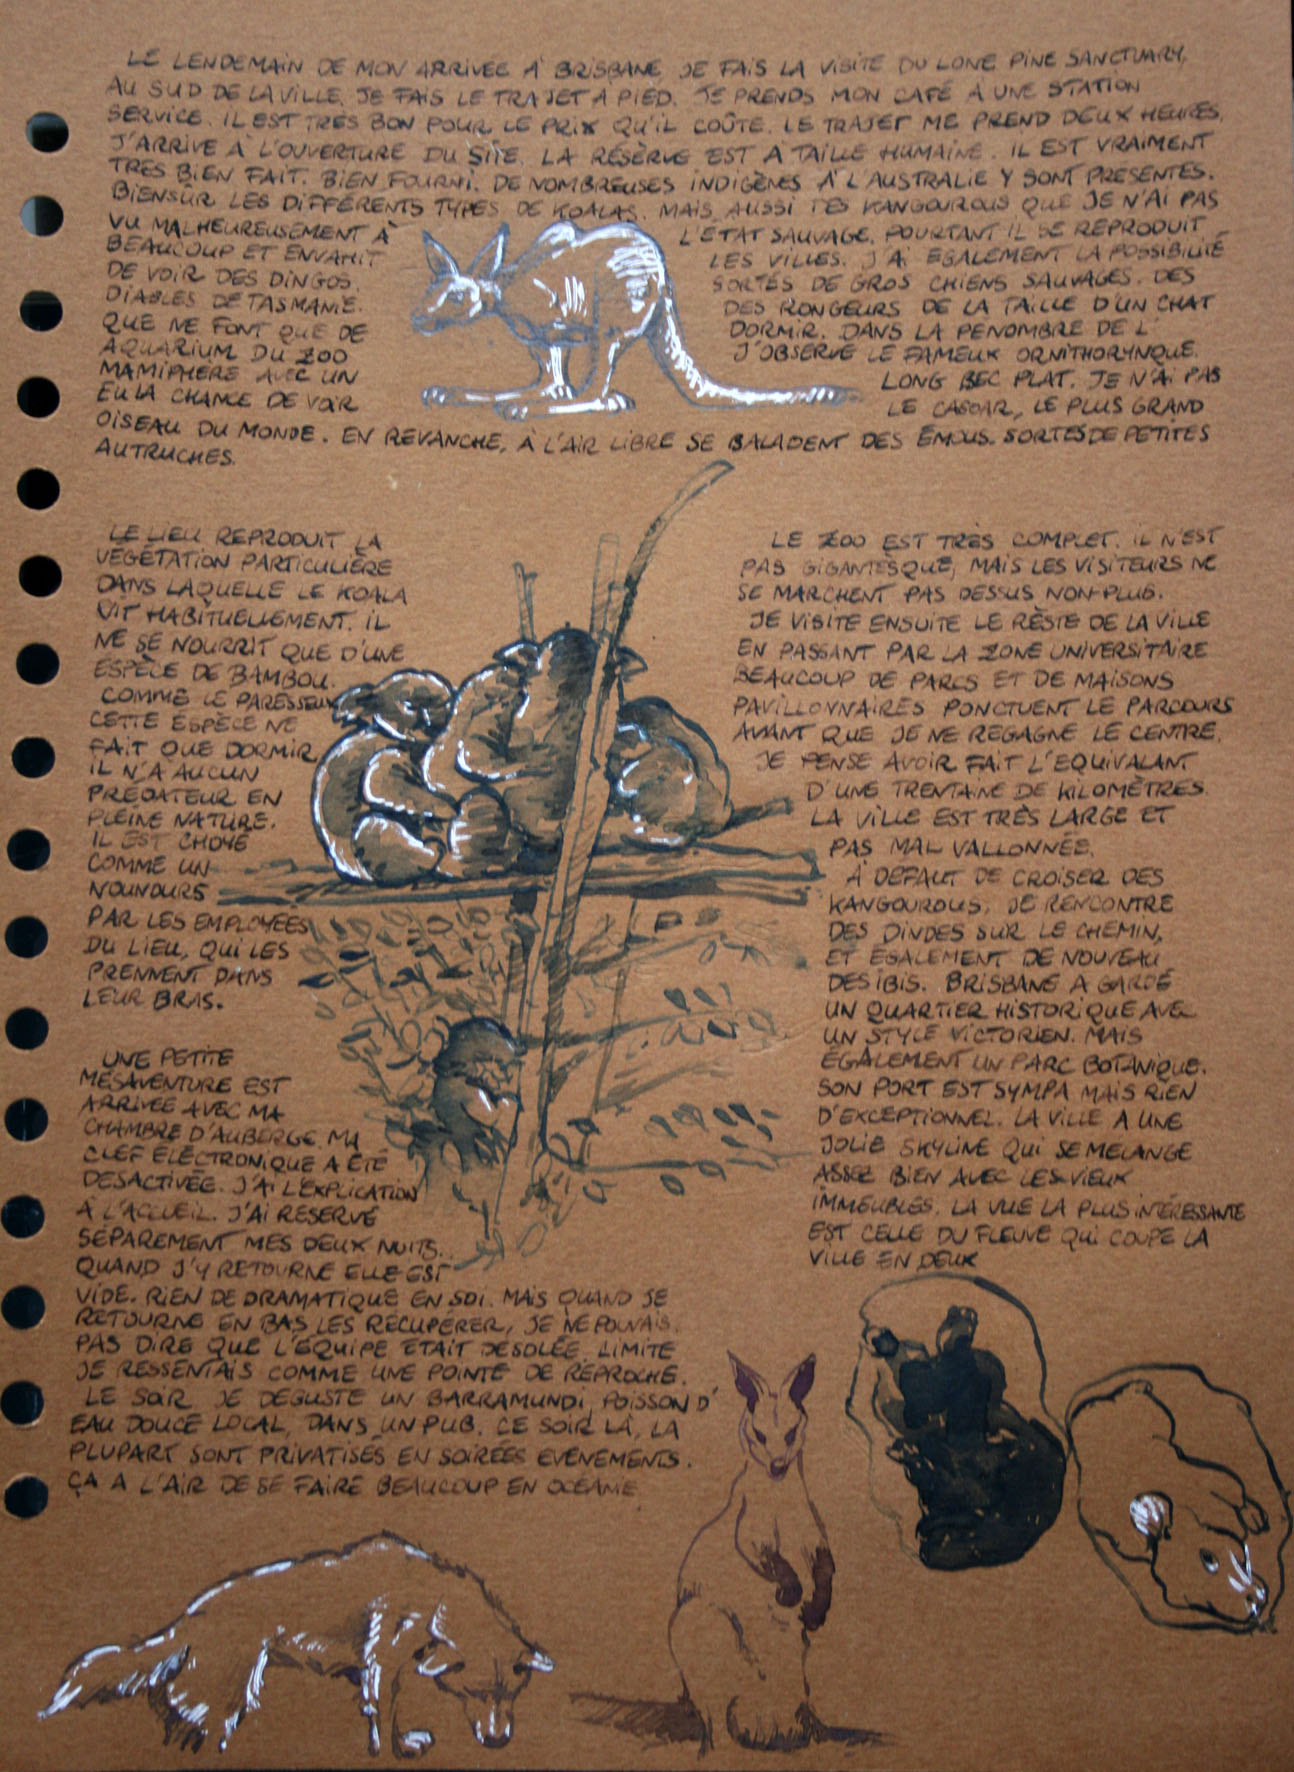 LE LENDEMAIN DE MON ARRIVÉE À BRISBANE, JE FAIS LA VISITE DU LONE PINE SANCTUARY,
AU SUD DE LA VILLE. JE FAIS LE TRAJET À PIED. JE PRENDS MON CAFÉ À UNE STATION
SERVICE. IL EST TRÈS BON POUR LE PRIX QU'IL COÛTE. LE TRAJET ME PREND DEUX HEURES.
J'ARRIVE À L'OUVERTURE DU SITE. LA RÉSERVE EST À TAILLE HUMAINE. IL EST VRAIMENT
TRÈS BIEN FAIT. BIEN FOURNI. DE NOMBREUSES INDIGÈNES À L'AUSTRALIE Y SONT PRÉSENTES.
BIENSÛR LES DIFFÉRENTS TYPES DE KOALAS. MAIS AUSSI DES KANGOUROUS QUE JE N'AI PAS
VU MALHEUREUSEMENT À L'ÉTAT SAUVAGE. POURTANT IL SE REPRODUIT
BEAUCOUP ET ENVAHIT LES VILLES. J'AI ÉGALEMENT LA POSSIBILITÉ
DE VOIR DES DINGOS. SORTES DE GROS CHIENS SAUVAGES. DES
DIABLES DE TASMANIE. DES RONGEURS DE LA TAILLE D'UN CHAT
QUE NE FONT QUE DE DORMIR. DANS LA PÉNOMBRE DE L'
AQUARIUM DU ZOO J'OBSERVE LE FAMEUX ORNITHORYNQUE.
MAMIPHÈRE AVEC UN LONG BEC PLAT. JE N'AI PAS
EU LA CHANCE DE VOIR LE CASOAR, LE PLUS GRAND
OISEAU DU MONDE. EN REVANCHE, À L'AIR LIBRE SE BALADENT DES ÉMOUS. SORTES DE PETITES
AUTRUCHES.
LE LIEU REPRODUIT LA
VÉGÉTATION PARTICULIÈRE
DANS LAQUELLE LE KOALA
VIT HABITUELLEMENT. IL
NE SE NOURRIT QUE D'UNE
ESPÈCE DE BAMBOU.
COMME LE PARESSEUX
CETTE ESPÈCE NE
FAIT QUE DORMIR.
IL N'A AUCUN
PRÉDATEUR EN
PLEINE NATURE.
IL EST CHOYÉ
COMME UN
NOUNOURS
PAR LES EMPLOYÉES
DU LIEU, QUI LES
PRENNENT DANS
LEUR BRAS.
UNE PETITE
MÉSAVENTURE EST
ARRIVÉE AVEC MA
CHAMBRE D'AUBERGE. MA
CLEF ÉLECTRONIQUE A ÉTÉ
DÉSACTIVÉE. J'AI L'EXPLICATION
À L'ACCUEIL. J'AI RÉSERVÉ
SÉPARÉMENT MES DEUX NUITS.
QUAND J'Y RETOURNE ELLE EST
VIDE. RIEN DE DRAMATIQUE EN SOI. MAIS QUAND JE
RETOURNE EN BAS LES RÉCUPÉRER, JE NE POUVAIS
PAS DIRE QUE L'ÉQUIPE ÉTAIT DÉSOLÉE. LIMITE
JE RESSENTAIS COMME UNE POINTE DE REPROCHE.
LE SOIR JE DÉGUSTE UN BARRAMUNDI, POISSON D'
EAU DOUCE LOCAL, DANS UN PUB. CE SOIR LÀ, LA
PLUPART SONT PRIVATISÉS EN SOIRÉES ÉVÈNEMENTS.
ÇA A L'AIR DE SE FAIRE BEAUCOUP EN OCÉANIE.
LE ZOO EST TRÈS COMPLET. IL N'EST
PAS GIGANTESQUE, MAIS LES VISITEURS NE
SE MARCHENT PAS DESSUS NON-PLUS.
JE VISITE ENSUITE LE RESTE DE LA VILLE
EN PASSANT PAR LA ZONE UNIVERSITAIRE
BEAUCOUP DE PARCS ET DE MAISONS
PAVILLONNAIRES PONCTUENT LE PARCOURS
AVANT QUE JE NE REGAGNE LE CENTRE.
JE PENSE AVOIR FAIT L'ÉQUIVALANT
D'UNE TRENTAINE DE KILOMÈTRES.
LA VILLE EST TRÈS LARGE ET
PAS MAL VALLONNÉE.
À DÉFAUT DE CROISER DES
KANGOUROUS, JE RENCONTRE
DES DINDES SUR LE CHEMIN,
ET ÉGALEMENT DE NOUVEAU
DES IBIS. BRISBANE A GARDÉ
UN QUARTIER HISTORIQUE AVEC
UN STYLE VICTORIEN. MAIS
ÉGALEMENT UN PARC BOTANIQUE.
SON PORT EST SYMPA MAIS RIEN
D'EXCEPTIONNEL. LA VILLE A UNE
JOLIE SKYLINE QUI SE MÉLANGE
ASSEZ BIEN AVEC LES VIEUX
IMMEUBLES. LA VUE LA PLUS INTÉRESSANTE
EST CELLE DU FLEUVE QUI COUPE LA
VILLE EN DEUX